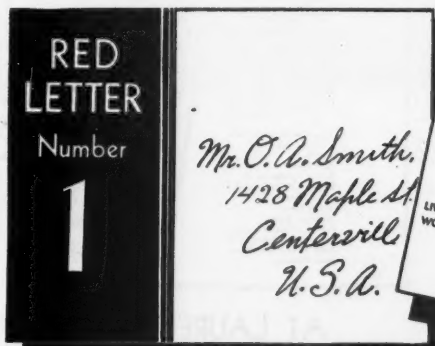 RED
LETTER
Number
1
Mr. O. A. Smith.
1428 Maple St
Centerville
U.S.A.